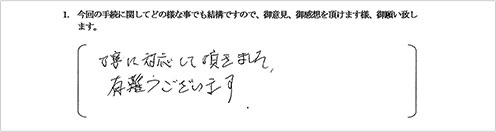 1. 今回の手続に関してどの様な事でも結構ですので、御意見、御感想を頂けます様、御願い致し
ます。
丁寧に対応して頂きまして、
有難うございます.